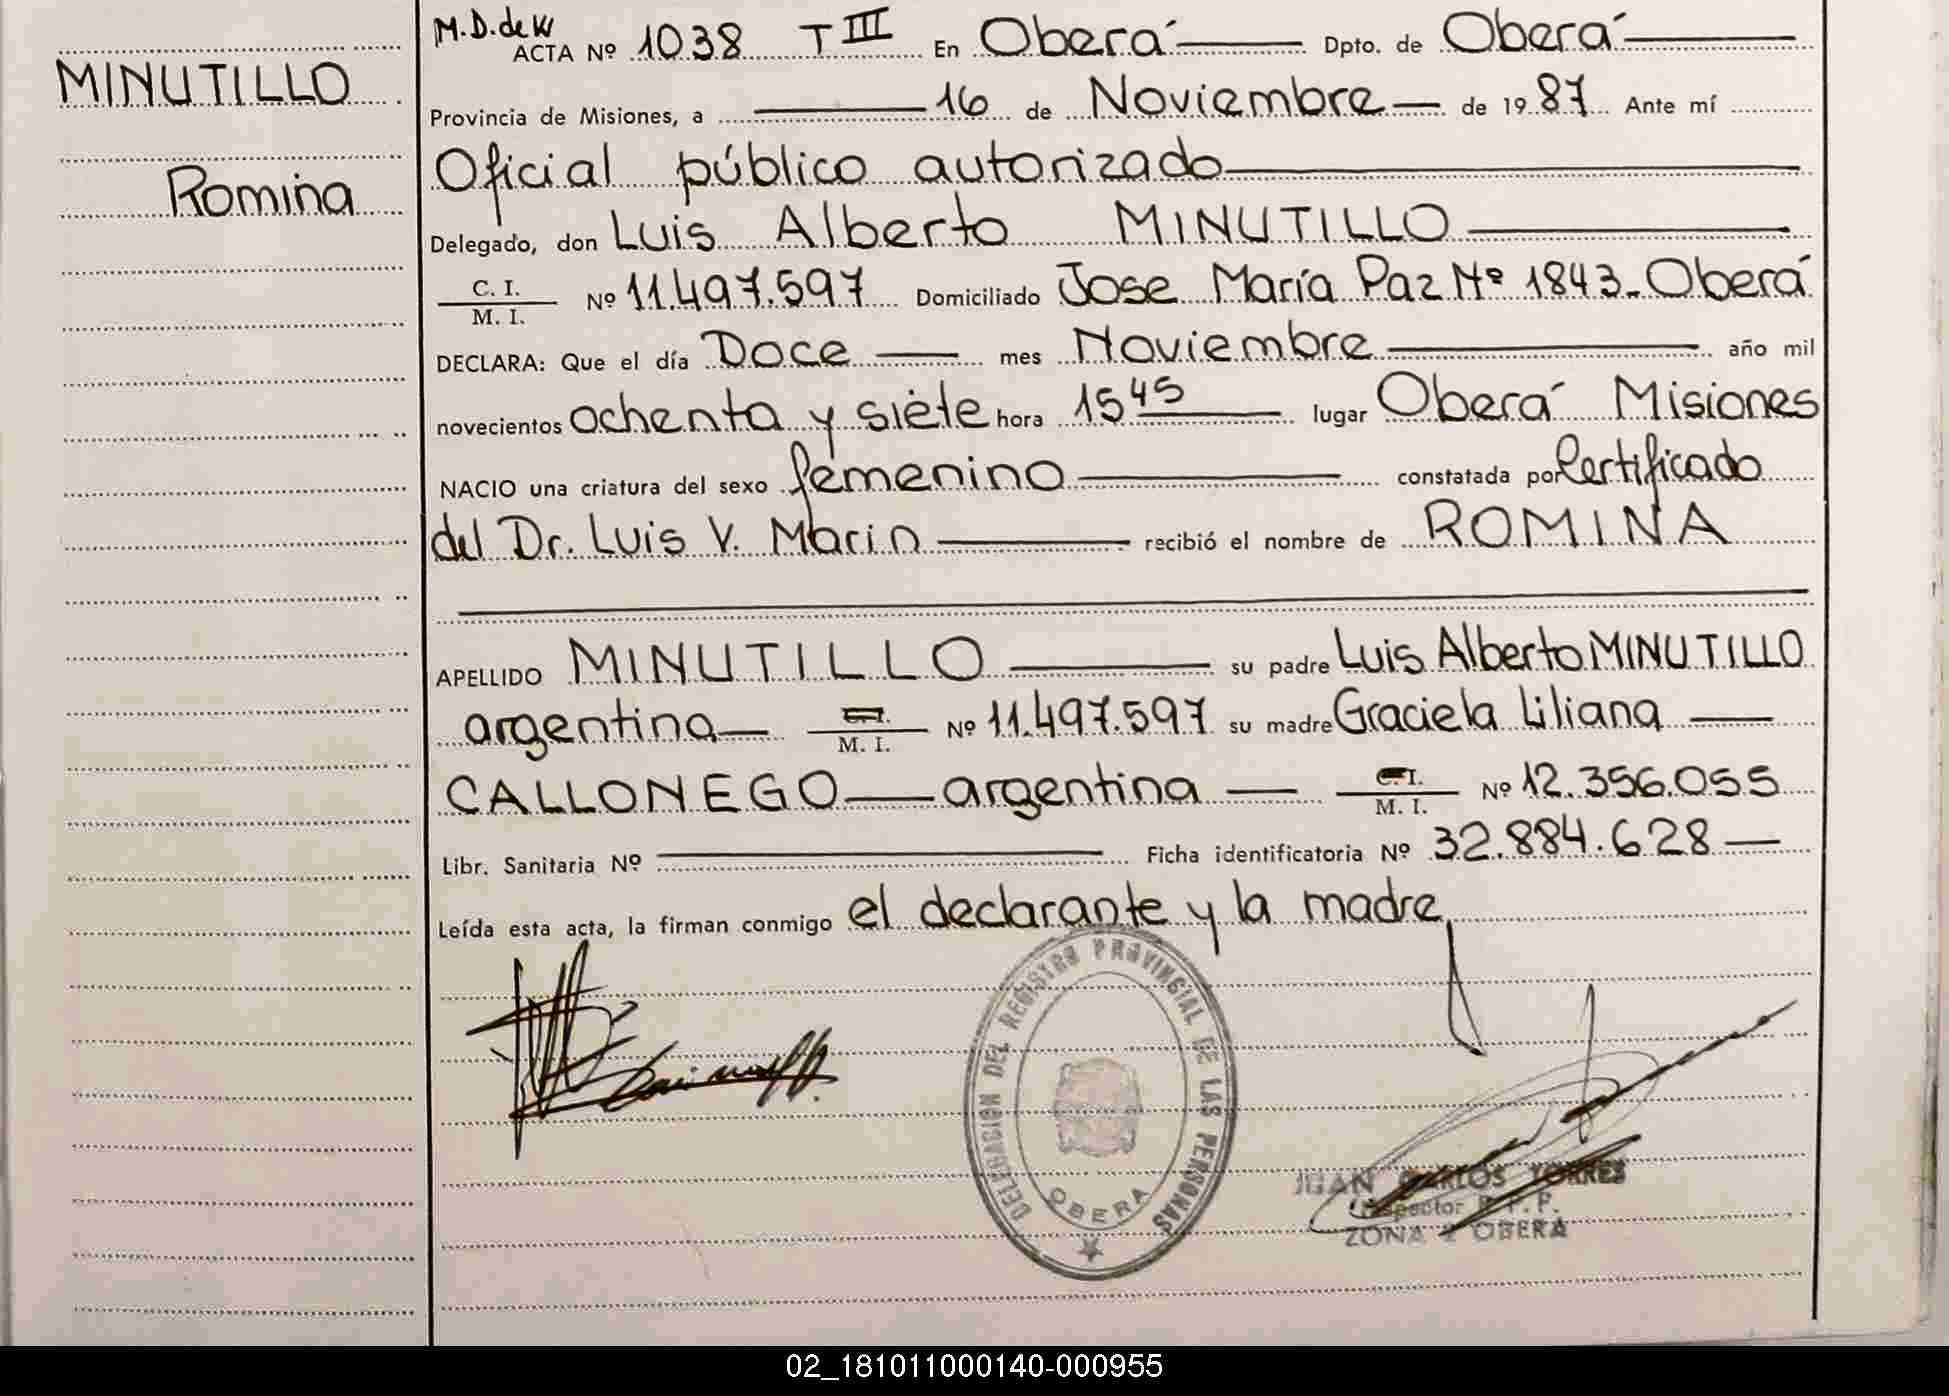 MINUTILLO
Romina
M.D. de W
ACTA Nº 1038 T III En Oberá Dpto. de Oberá
Provincia de Misiones, a 16 de Noviembre de 1987 Ante mí
Oficial público autorizado
Delegado, don Luis Alberto MINUTILLO
C. I.
M. I. Nº 11.497.597 Domiciliado Jose María Paz Nº 1843-Oberá
DECLARA: Que el día Doce mes Noviembre año mil
novecientos ochenta y siete hora 15 45 lugar Oberá Misiones
NACIO una criatura del sexo femenino constatada por Certificado
del Dr. Luis V. Marin recibió el nombre de ROMINA
APELLIDO MINUTILLO su padre Luis Alberto MINUTILLO
argentina M. I. Nº 11.497.597 su madre Graciela Liliana
CALLONEGO argentina C. I. M. I. Nº 12.356.055
Libr. Sanitaria Nº Ficha identificatoria Nº 32.884.628
Leída esta acta, la firman conmigo el declarante y la madre
DELEGACION DEL REGISTRO PROVINCIAL DE LAS PERSONAS
OBERA
JUAN CARLOS TORRES
Inspector R.P.P.
ZONA OBERA
02_181011000140-000955